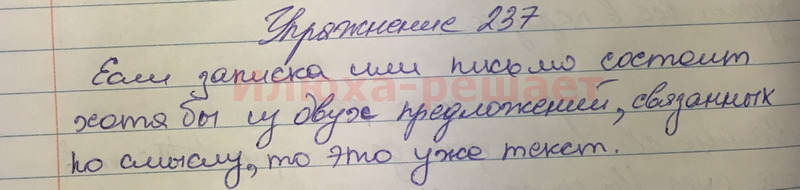 Упражнение 237
Если записка или письмо состоит
илюха-решает
хотя бы из двух предложений, связанных
по смыслу, то это уже текст.